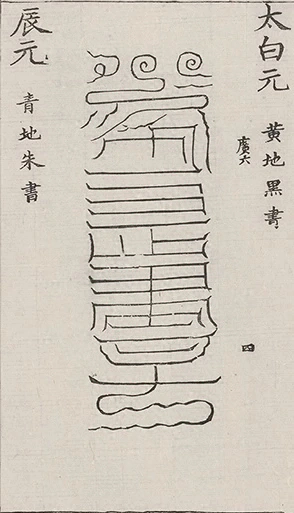 太白元
黃地黑書
廣六
四
辰元
青地朱書